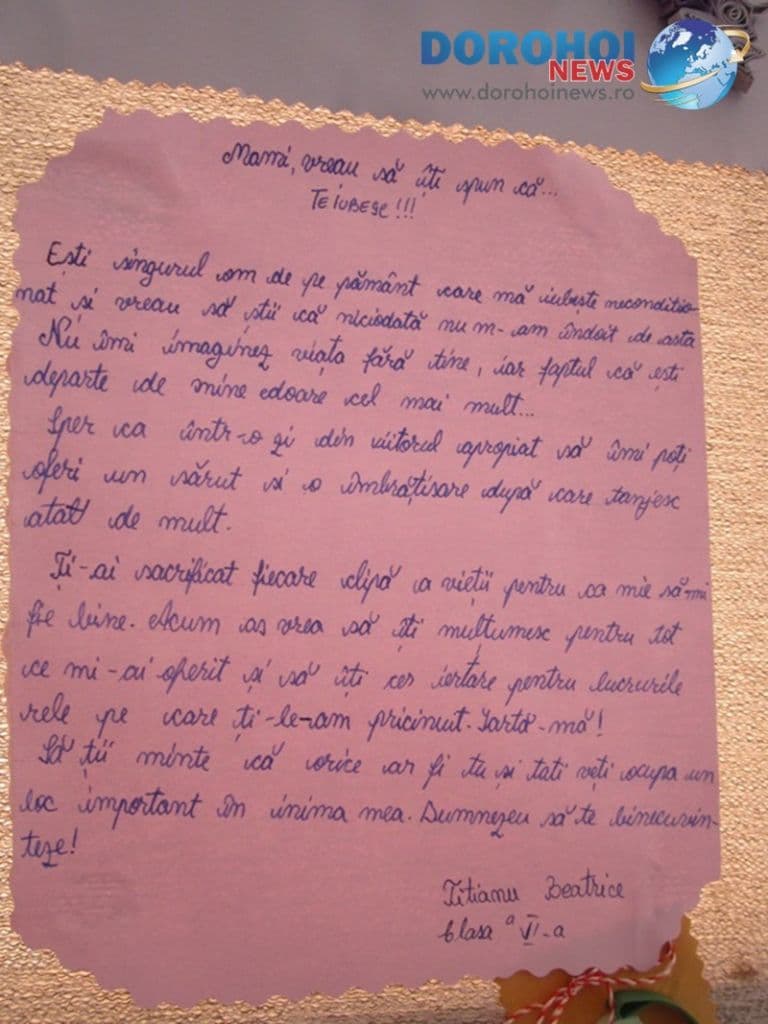 DOROHOI
NEWS
www.dorohoinews.ro
Mami, vreau să îți spun că...
TE IUBESC!!!
Ești singurul om de pe pământ care mă iubește neconditio-
nat și vreau să știi că niciodată nu m-am îndoit de asta
Nu îmi imaginez viața fără tine, iar faptul că ești
departe de mine edoare cel mai mult...
Sper ca într-o zi din viitorul apropiat să îmi poți
oferi un sărut si o îmbrățisare după care tanjesc
atat de mult.
Ți-ai sacrificat fiecare clipă a vieții pentru ca mie să-mi
fie bine. Acum as vrea să îți mulțumesc pentru tot
ce mi-ai oferit și să îți cer iertare pentru lucrurile
rele pe care ți-le-am pricinuit. Iartă-mă!
Să ții minte că orice ar fi tu și tati veți ocupa un
loc important în inima mea. Dumnezeu să te binecuvin-
teze!
Titianu Beatrice
Clasa a VI-a